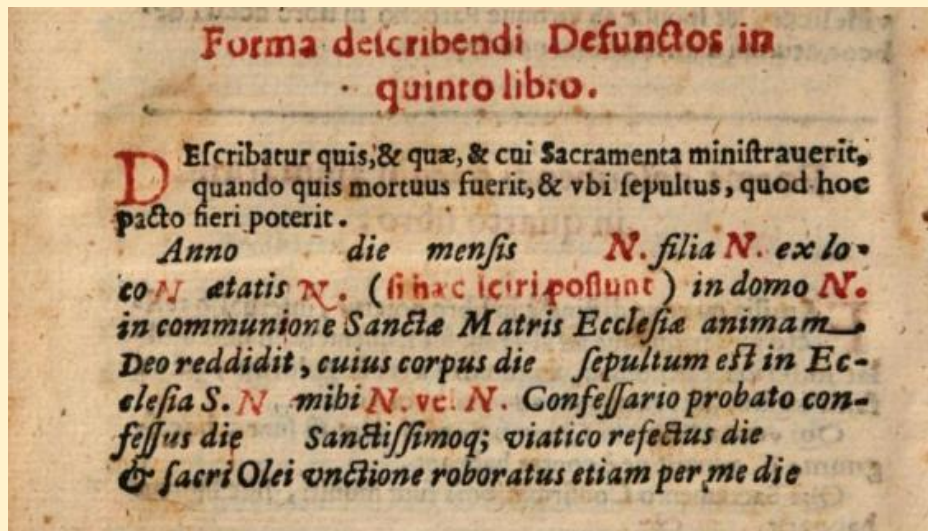 Forma describendi Defunctos in
quinto libro.
DEscribatur quis, & quæ, & cui Sacramenta ministrauerit,
quando quis mortuus fuerit, & vbi sepultus, quod hoc
pacto fieri poterit.
Anno die mensis N. filia N. ex lo-
co N ætatis N. (si hæc sciri possunt) in domo N.
in communione Sanctæ Matris Ecclesiæ animam
Deo reddidit, cuius corpus die sepultum est in Ec-
clesia S. N mihi N. vel N. Confessario probato con-
fessus die Sanctissimoq; viatico refectus die
& sacri Olei vnctione roboratus etiam per me die